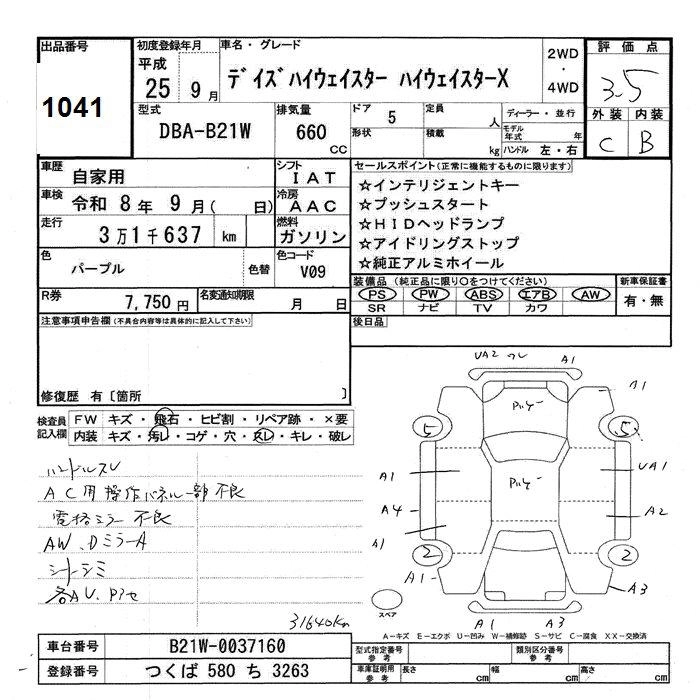 出品番号
1041
初度登録年月
平成
25 9月
車名・グレード
デイズハイウェイスター ハイウェイスターX
2WD
・
4WD
評価点
3.5
外装 内装
C B
型式
DBA-B21W
排気量
660 CC
ドア 5
形状
定員 人
積載 kg
ディーラー・並行
モデル年式 年
ハンドル 左・右
車歴
自家用
シフト
IAT
車検
令和 8年 9月( 日)
冷房
AAC
走行
3万1千637 km
燃料
ガソリン
色
パープル
色替
色コード
V09
R券
7,750円
名変通知期限
月 日
セールスポイント(正常に機能するものに限ります)
☆インテリジェントキー
☆プッシュスタート
☆HIDヘッドランプ
☆アイドリングストップ
☆純正アルミホイール
装備品(純正品に限り○をつけてください)
PS PW ABS エアB AW
SR ナビ TV カワ
新車保証書
有・無
後日品
注意事項申告欄(不具合内容等は具体的に記入して下さい)
修復歴 有〔箇所 〕
検査員記入欄
FW キズ・飛石・ヒビ割・リペア跡・×要
内装 キズ・汚レ・コゲ・穴・スレ・キレ・破レ
ハンドルスレ
AC用操作パネル一部不良
電格ミラー不良
AW、DミラーA
シートシミ
各AU、Pアセ
31640Km
UA2 A1
A1
5 5
A1 UA1
A4 A2
A1
2 2
A1 A3
A1 A3
スペア
A-キズ E-エクボ U-凹み W-補修跡 S-サビ C-腐食 XX-交換済
車台番号 B21W-0037160
登録番号 つくば 580 ち 3263
型式指定番号 参考
類別区分番号 参考
車庫証明用 参考
長さ cm 幅 cm 高さ cm